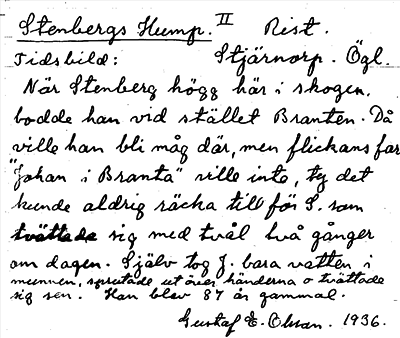 Stenbergs Hump. II Rist.
Tidsbild: Stjärnorp. Ögl.
När Stenberg högg här i skogen,
bodde han vid stället Branten. Då
ville han bli måg där, men flickans far
"Johan i Branta" ville inte, ty det
kunde aldrig räcka till för S. som
tvättade sig med tvål två gånger
om dagen. Själv tog J. bara vatten i
munnen, sprutade ut över händerna o tvättade
sig sen. Han blev 87 år gammal.
Gustaf E. Olsson. 1936.